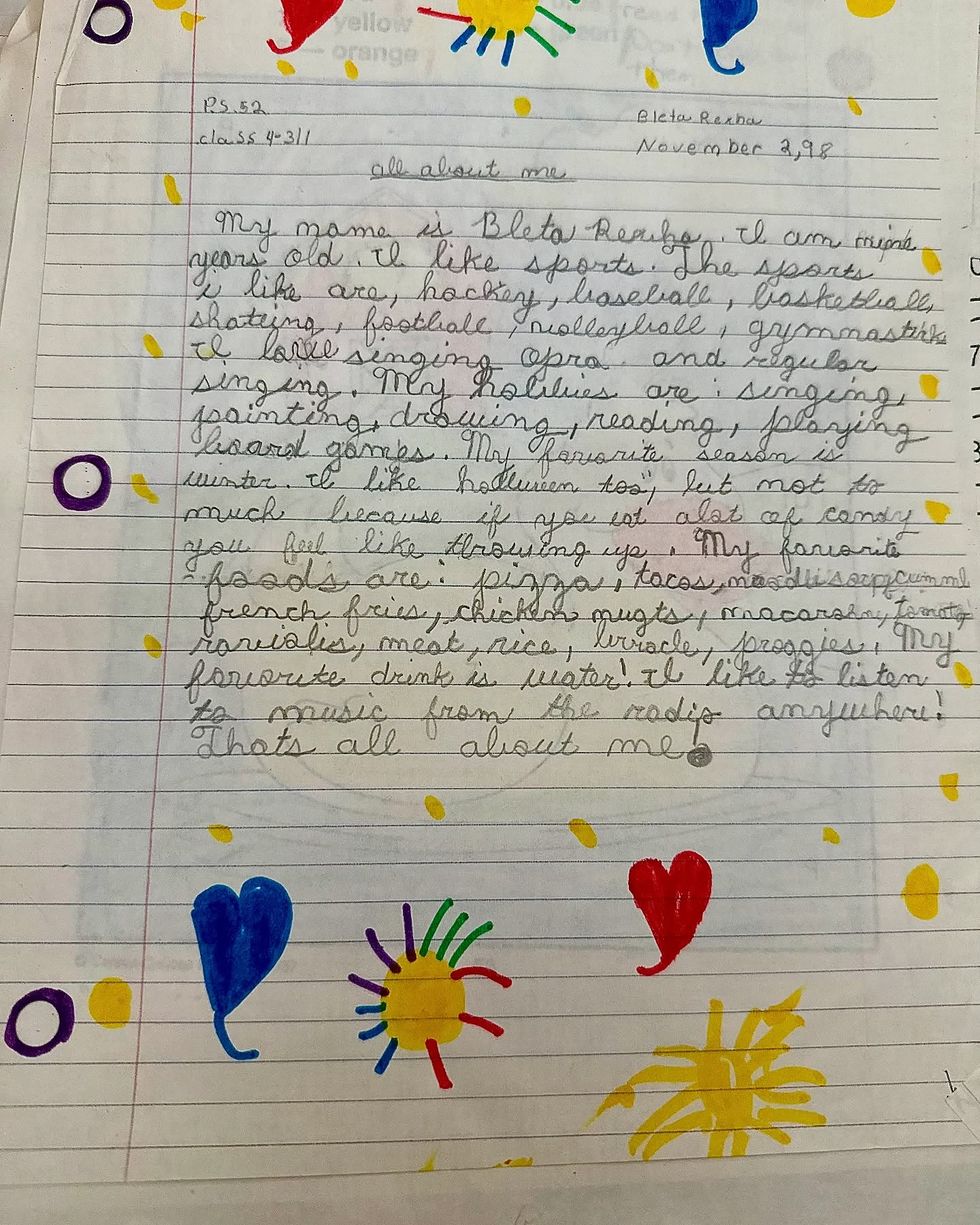 yellow
— orange
P.S.52
class 4-311
Bleta Rexha
November 2,98
all about me
My name is Bleta Rexha. I am nine
years old. I like sports. The sports
i like are, hockey, baseball, basketball,
skating, football, volleyball, gymnastiks
I love singing Opra and regular
singing. My hobbies are: singing,
painting, drawing, reading, playing
board games. My favorite season is
winter. I like holluween too, but not to
much because if you eat alot of candy
you feel like throwing up. My favorite
foods are: pizza, tacos,
french fries, chicken nugts, macaroni, tomato
raviolis, meat, rice, proggies. My
favorite drink is water! I like to listen
to music from the radio anywhere!
Thats all about me.